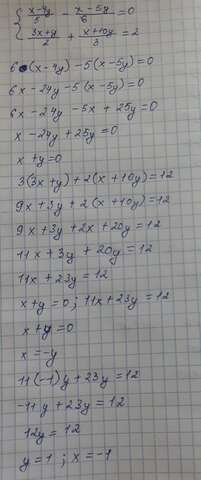 { (x-4y)/5 - (x-5y)/6 = 0
(3x+y)/2 + (x+10y)/3 = 2
6(x-4y)-5(x-5y)=0
6x-24y-5(x-5y)=0
6x-24y-5x+25y=0
x-24y+25y=0
x+y=0
3(3x+y)+2(x+10y)=12
9x+3y+2(x+10y)=12
9x+3y+2x+20y=12
11x+3y+20y=12
11x+23y=12
x+y=0; 11x+23y=12
x+y=0
x=-y
11(-1)y+23y=12
-11y+23y=12
12y=12
y=1; x=-1